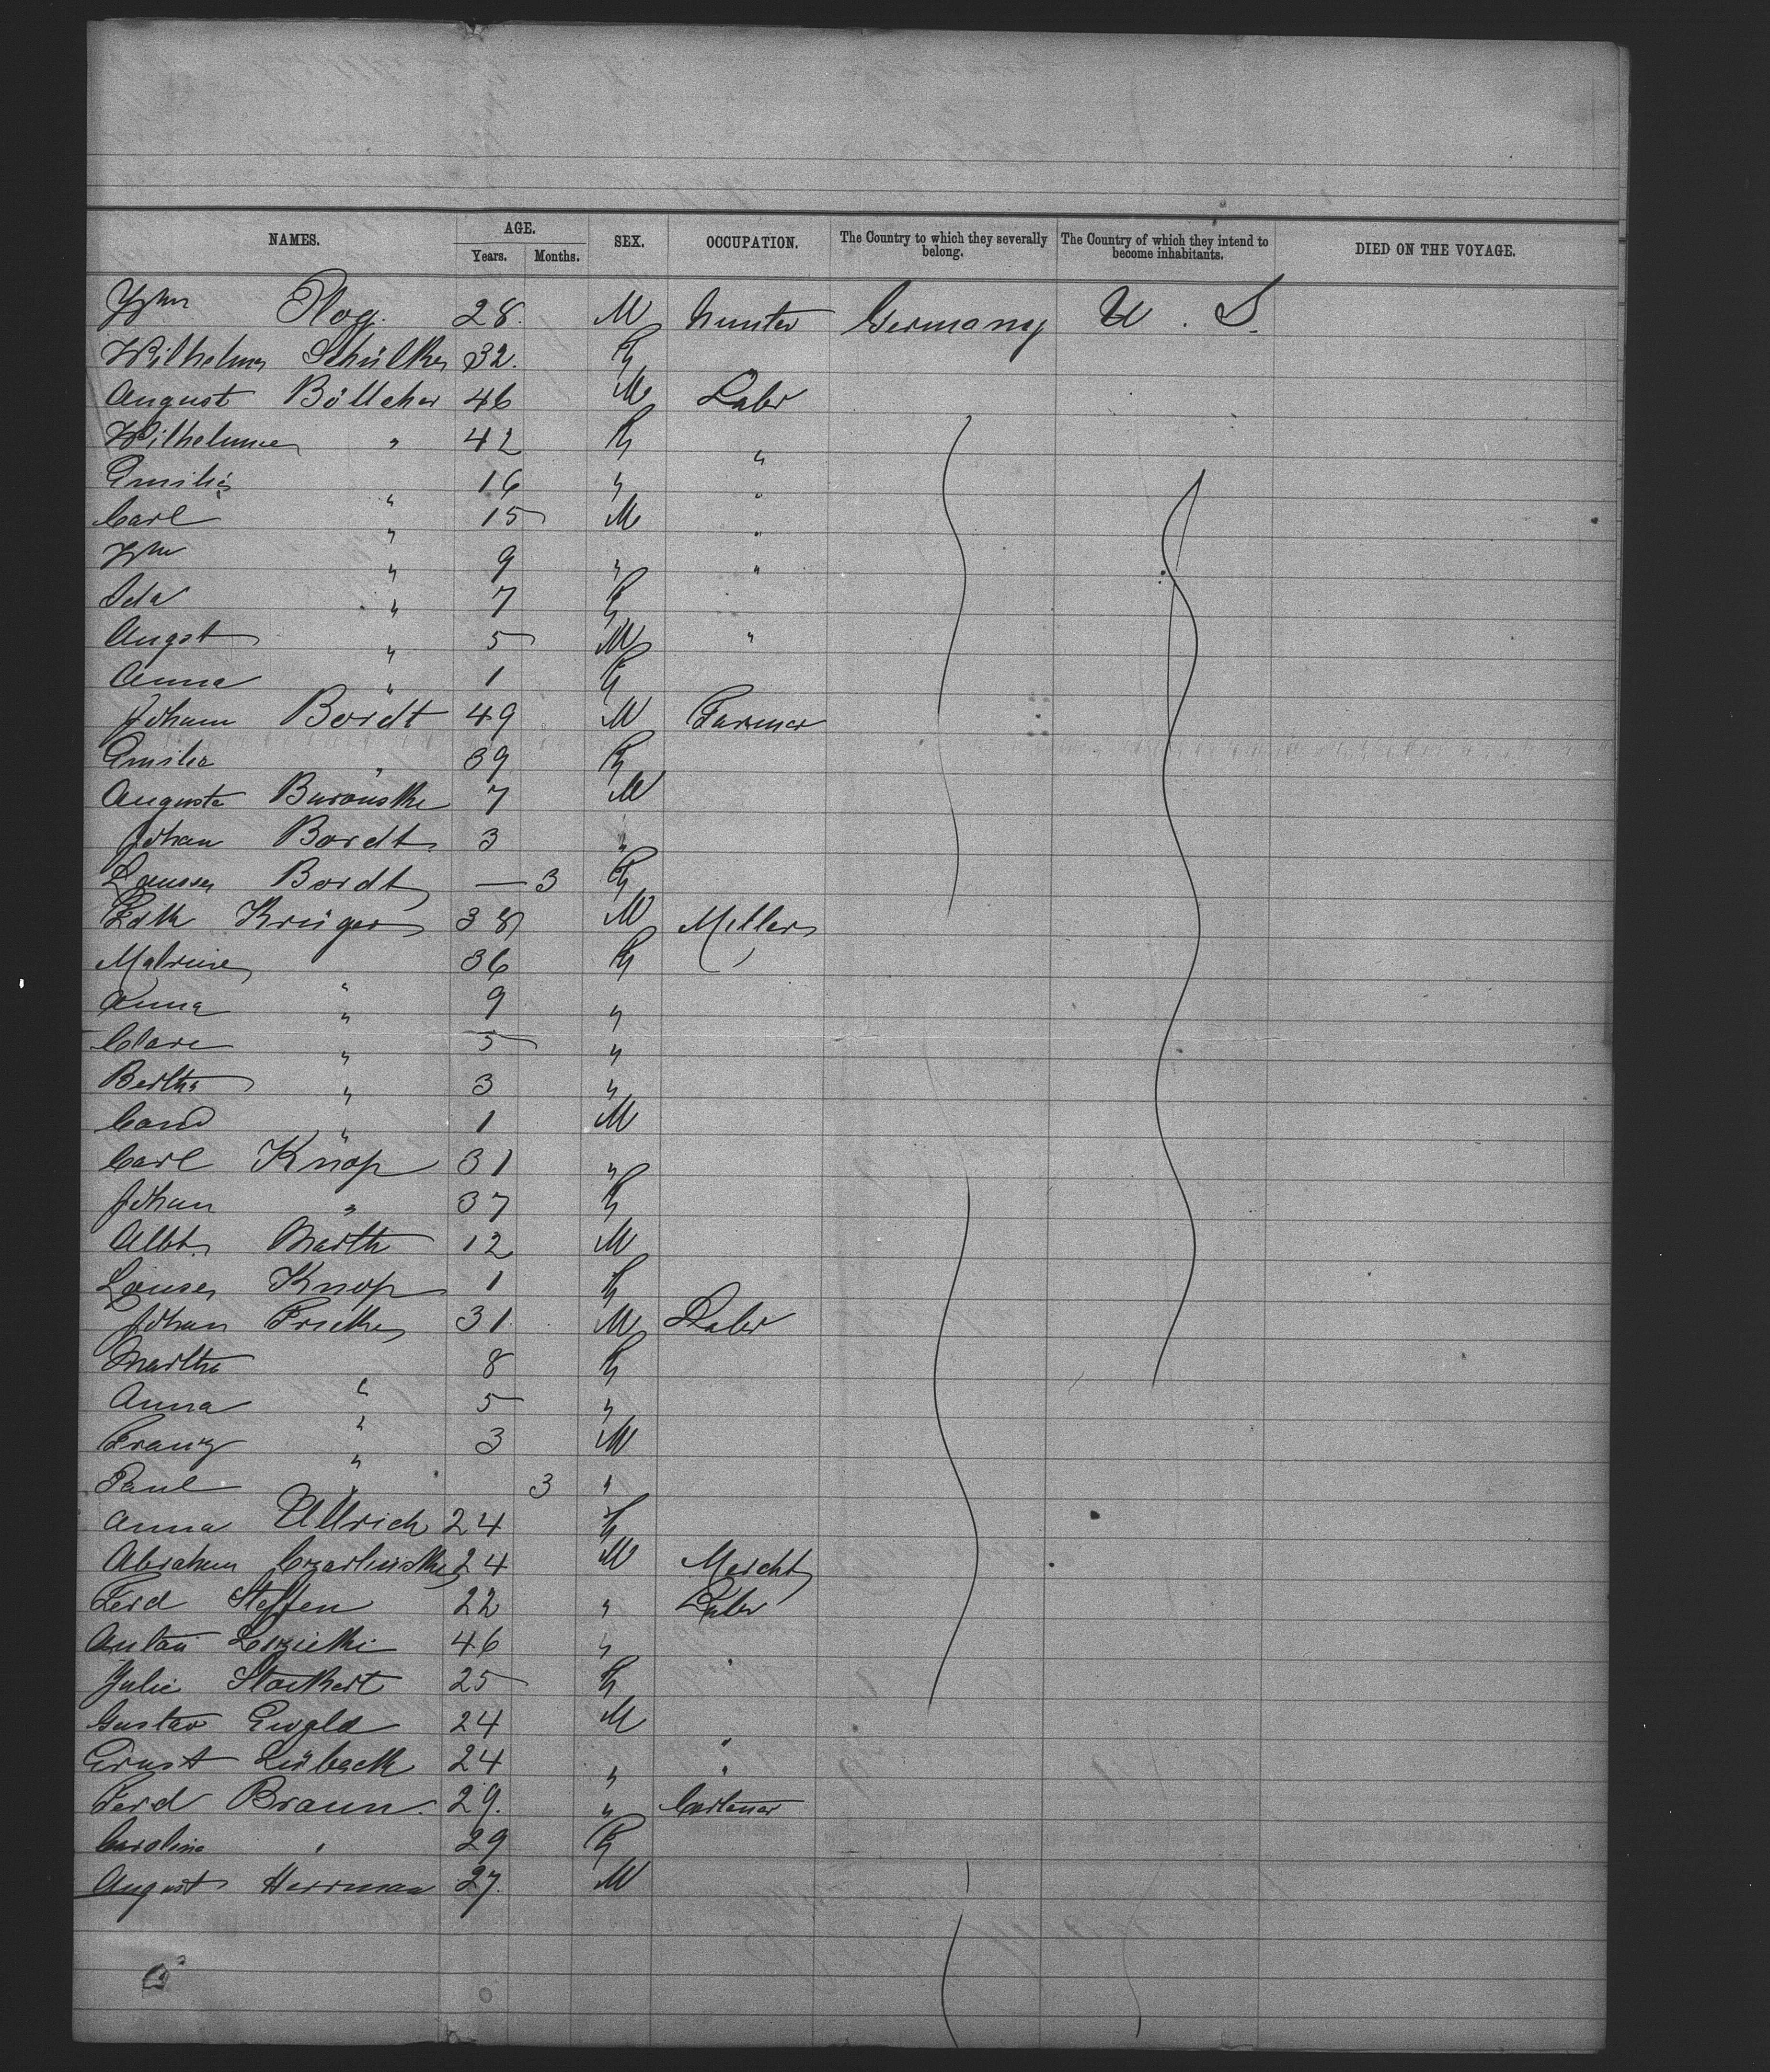 NAMES. AGE. Years. Months. SEX. OCCUPATION. The Country to which they severally belong. The Country of which they intend to become inhabitants. DIED ON THE VOYAGE.
Wm Plog. 28. M hunter Germany U. S.
Wilhelmine Schülke 32. F
August Böttcher 46 M Labr
Wilhelmine " 42 F "
Emilie " 16 " "
Carl " 15 M "
Wm " 9 " "
Ida " 7 F
Augst " 5 M "
Anna " 1 F
Johann Bordt 49 M Farmer
Emilie " 39 F
Auguste 7 M
Johan Bordt 3 "
Bordt — 3 F
Krüger 38 M Miller
Malvine " 36 F
Anna " 9 "
Clare " 5 "
Bertha " 3 "
" 1 M
Carl Knop 31 "
Johan " 37 F
Albt. Marth 12 M
Louise Knop 1 F
Johan Fricke 31 M Labr
Martha " 8 F
Anna " 5 "
Franz " 3 M
Paul " 3 "
Anna Ullrich 24 F
Abraham Czarlinske 24 M Mercht
Ferd Steffen 22 " Labr
46 "
Julie Stockert 25 F "
Gustav Ewald 24 M "
Ernst 24 " "
Ferd Braun. 29. "
Caroline " 29 F
August Herrman 27. M